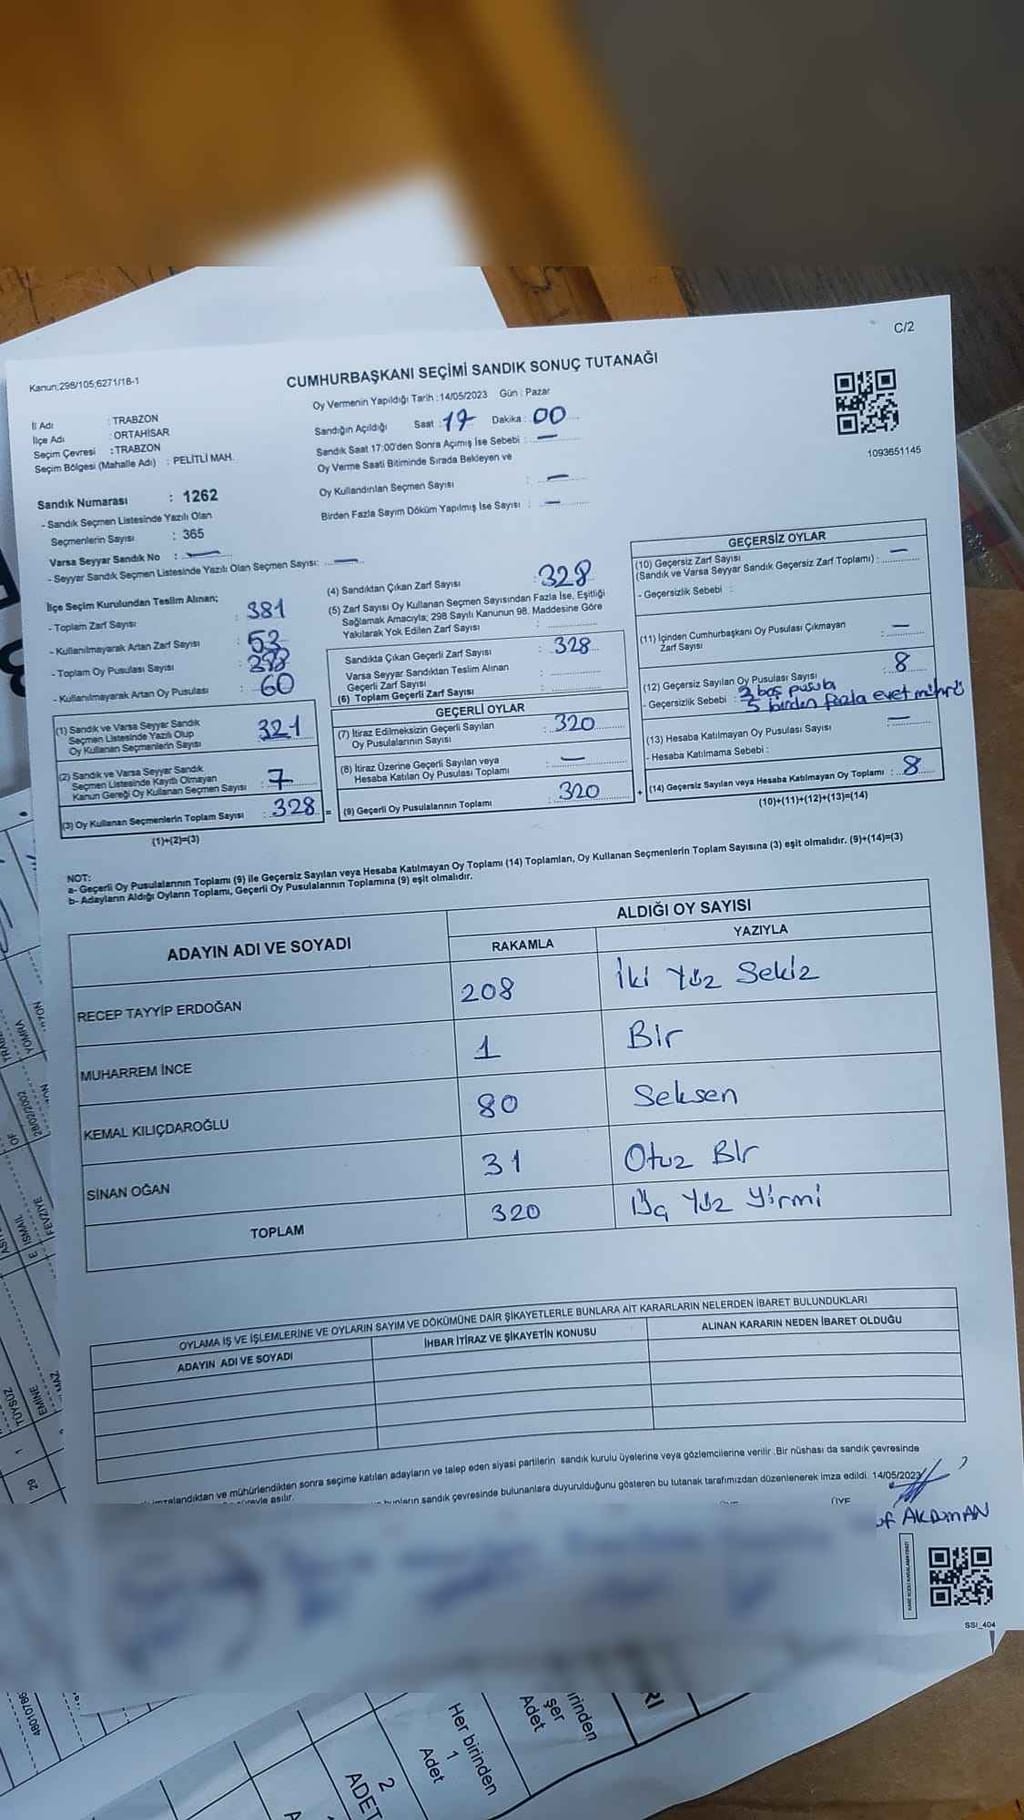 C/2
Kanun;298/105;6271/18-1
CUMHURBAŞKANI SEÇİMİ SANDIK SONUÇ TUTANAĞI
Oy Vermenin Yapıldığı Tarih : 14/05/2023 Gün : Pazar
İl Adı : TRABZON
İlçe Adı : ORTAHİSAR
Seçim Çevresi : TRABZON
Seçim Bölgesi (Mahalle Adı) : PELİTLİ MAH.
Sandık Numarası : 1262
- Sandık Seçmen Listesinde Yazılı Olan
Seçmenlerin Sayısı : 365
Varsa Seyyar Sandık No : —
- Seyyar Sandık Seçmen Listesinde Yazılı Olan Seçmen Sayısı: —
Sandığın Açıldığı Saat : 17 Dakika : 00
Sandık Saat 17:00'den Sonra Açımış İse Sebebi : —
Oy Verme Saati Bitiminde Sırada Bekleyen ve
Oy Kullandırılan Seçmen Sayısı : —
Birden Fazla Sayım Döküm Yapılmış İse Sayısı : —
1093651145
İlçe Seçim Kurulundan Teslim Alınan;
- Toplam Zarf Sayısı : 381
- Kullanılmayarak Artan Zarf Sayısı : 53
- Toplam Oy Pusulası Sayısı :
- Kullanılmayarak Artan Oy Pusulası : 60
(1) Sandık ve Varsa Seyyar Sandık
Seçmen Listesinde Yazılı Olup
Oy Kullanan Seçmenlerin Sayısı : 321
(2) Sandık ve Varsa Seyyar Sandık
Seçmen Listesinde Kayıtlı Olmayan
Kanun Gereği Oy Kullanan Seçmen Sayısı : 7
(3) Oy Kullanan Seçmenlerin Toplam Sayısı : 328 =
(1)+(2)=(3)
(4) Sandıktan Çıkan Zarf Sayısı : 328
(5) Zarf Sayısı Oy Kullanan Seçmen Sayısından Fazla İse, Eşitliği
Sağlamak Amacıyla; 298 Sayılı Kanunun 98. Maddesine Göre
Yakılarak Yok Edilen Zarf Sayısı :
Sandıkta Çıkan Geçerli Zarf Sayısı : 328
Varsa Seyyar Sandıktan Teslim Alınan
Geçerli Zarf Sayısı :
(6) Toplam Geçerli Zarf Sayısı :
GEÇERLİ OYLAR
(7) İtiraz Edilmeksizin Geçerli Sayılan
Oy Pusulalarının Sayısı : 320
(8) İtiraz Üzerine Geçerli Sayılan veya
Hesaba Katılan Oy Pusulası Toplamı : —
(9) Geçerli Oy Pusulalarının Toplamı : 320 +
GEÇERSİZ OYLAR
(10) Geçersiz Zarf Sayısı
(Sandık ve Varsa Seyyar Sandık Geçersiz Zarf Toplamı) : —
- Geçersizlik Sebebi :
(11) İçinden Cumhurbaşkanı Oy Pusulası Çıkmayan
Zarf Sayısı : —
(12) Geçersiz Sayılan Oy Pusulası Sayısı : 8
- Geçersizlik Sebebi : 3 boş pusula
5 birden fazla evet mührü
(13) Hesaba Katılmayan Oy Pusulası Sayısı : —
- Hesaba Katılmama Sebebi :
(14) Geçersiz Sayılan veya Hesaba Katılmayan Oy Toplamı : 8
(10)+(11)+(12)+(13)=(14)
NOT:
a- Geçerli Oy Pusulalarının Toplamı (9) ile Geçersiz Sayılan veya Hesaba Katılmayan Oy Toplamı (14) Toplamları, Oy Kullanan Seçmenlerin Toplam Sayısına (3) eşit olmalıdır. (9)+(14)=(3)
b- Adayların Aldığı Oyların Toplamı, Geçerli Oy Pusulalarının Toplamına (9) eşit olmalıdır.
ADAYIN ADI VE SOYADI
ALDIĞI OY SAYISI
RAKAMLA YAZIYLA
RECEP TAYYİP ERDOĞAN 208 İki Yüz Sekiz
MUHARREM İNCE 1 Bir
KEMAL KILIÇDAROĞLU 80 Seksen
SİNAN OĞAN 31 Otuz Bir
TOPLAM 320 Üç Yüz Yirmi
OYLAMA İŞ VE İŞLEMLERİNE VE OYLARIN SAYIM VE DÖKÜMÜNE DAİR ŞİKAYETLERLE BUNLARA AİT KARARLARIN NELERDEN İBARET BULUNDUKLARI
ADAYIN ADI VE SOYADI İHBAR İTİRAZ VE ŞİKAYETİN KONUSU ALINAN KARARIN NEDEN İBARET OLDUĞU
imzalandıktan ve mühürlendikten sonra seçime katılan adayların ve talep eden siyasi partilerin sandık kurulu üyelerine veya gözlemcilerine verilir .Bir nüshası da sandık çevresinde
asılır.
bunların sandık çevresinde bulunanlara duyurulduğunu gösteren bu tutanak tarafımızdan düzenlenerek imza edildi. 14/05/2023
ÜYE
AKDUMAN
SSI_404
TÜYSÜZ
EMİNE
İSMAİL
FEVZİYE
28/02/2002
YOMRA
1
29
Her birinden
1
Adet
2
ADET
Adet